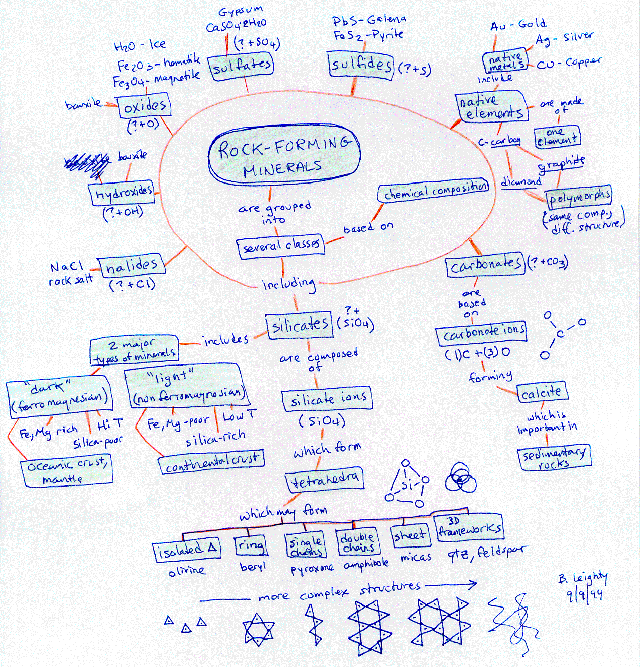 Gypsum
CaSO4·2H2O
sulfates
(?+SO4)
PbS-Galena
FeS2-Pyrite
sulfides (?+S)
Au-Gold
Ag-Silver
Cu-Copper
native
metals
include
native
elements
are made
of
one
element
C-carbon
graphite
diamond
polymorphs
(same comp,
diff. structure)
H2O-Ice
Fe2O3-hematite
Fe3O4-magnetite
bauxite
oxides
(?+O)
bauxite
hydroxides
(?+OH)
NaCl
rock salt
halides
(?+Cl)
ROCK-FORMING
MINERALS
are grouped
into
several classes
based on
chemical composition
including
carbonates (?+CO3)
are
based
on
carbonate ions
(1)C+(3)O
O
C
O
O
forming
calcite
which is
important in
sedimentary
rocks
silicates
?+
(SiO4)
includes
2 major
types of minerals
"dark"
(ferromagnesian)
Fe, Mg rich
Hi T
silica-poor
oceanic crust,
mantle
"light"
(nonferromagnesian)
Fe, Mg-poor
Low T
silica-rich
continental crust
are composed
of
silicate ions
(SiO4)
which form
tetrahedra
Si
which may form
isolated Δ
olivine
ring
beryl
single
chains
pyroxene
double
chains
amphibole
sheet
micas
3D
frameworks
qtz, feldspar
more complex structures
B. Leighty
9/9/99